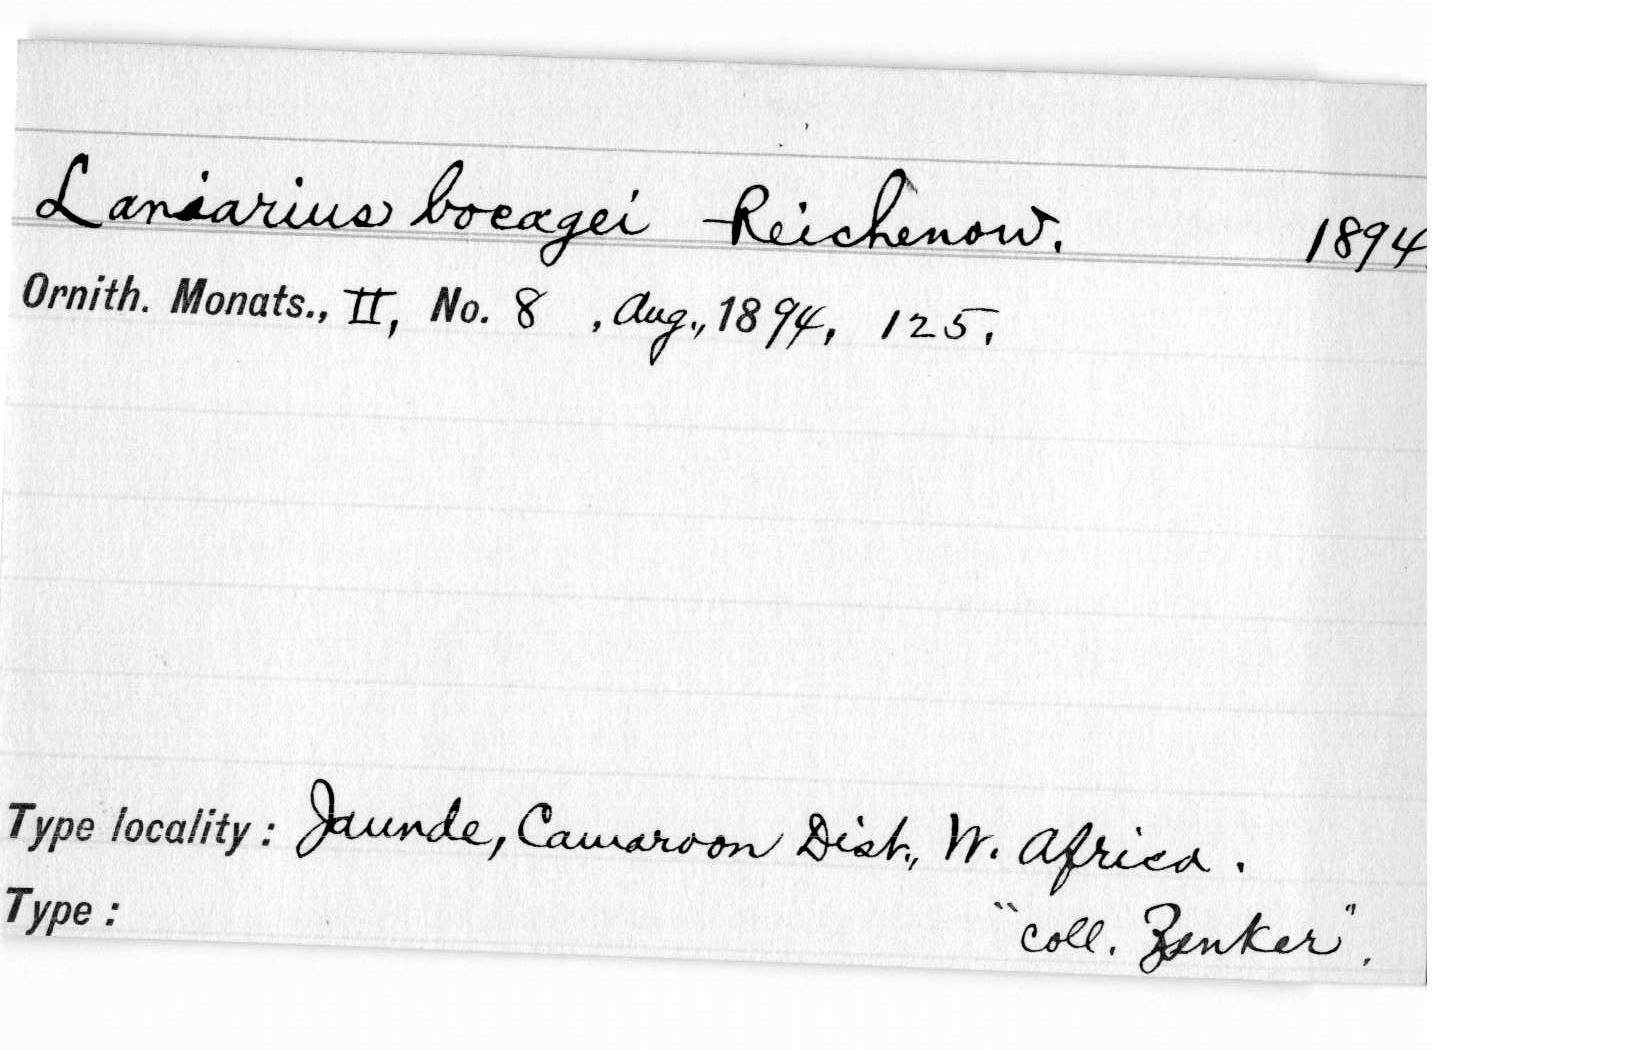 Laniarius bocagei Reichenow. 1894.
Ornith. Monats., II, No. 8 , Aug., 1894, 125.
Type locality: Jaunde, Camaroon Dist., W. Africa.
Type: "coll. Zenker".